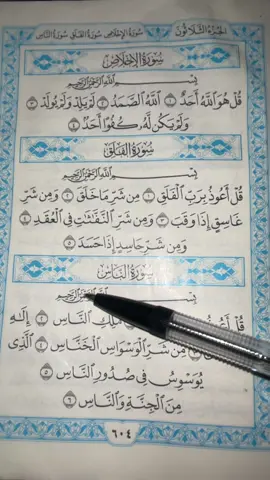 سُورَةُ الإِخْلَاصِ سُورَةُ الفَلَقِ سُورَةُ النَّاسِ
الجُزْءُ الثَّلَاثُونَ
سُورَةُ الإِخْلَاصِ
بِسْمِ ٱللَّهِ ٱلرَّحْمَٰنِ ٱلرَّحِيمِ
قُلْ هُوَ ٱللَّهُ أَحَدٌ ١ ٱللَّهُ ٱلصَّمَدُ ٢ لَمْ يَلِدْ وَلَمْ يُولَدْ ٣
وَلَمْ يَكُن لَّهُۥ كُفُوًا أَحَدٌۢ ٤
سُورَةُ الفَلَقِ
بِسْمِ ٱللَّهِ ٱلرَّحْمَٰنِ ٱلرَّحِيمِ
قُلْ أَعُوذُ بِرَبِّ ٱلْفَلَقِ ١ مِن شَرِّ مَا خَلَقَ ٢ وَمِن شَرِّ
غَاسِقٍ إِذَا وَقَبَ ٣ وَمِن شَرِّ ٱلنَّفَّٰثَٰتِ فِى ٱلْعُقَدِ ٤
وَمِن شَرِّ حَاسِدٍ إِذَا حَسَدَ ٥
سُورَةُ النَّاسِ
بِسْمِ ٱللَّهِ ٱلرَّحْمَٰنِ ٱلرَّحِيمِ
قُلْ مَلِكِ ٱلنَّاسِ ٢ إِلَٰهِ
مِن شَرِّ ٱلْوَسْوَاسِ ٱلْخَنَّاسِ ٤ ٱلَّذِى
يُوَسْوِسُ فِى صُدُورِ ٱلنَّاسِ ٥
مِنَ ٱلْجِنَّةِ وَٱلنَّاسِ ٦
٦٠٤